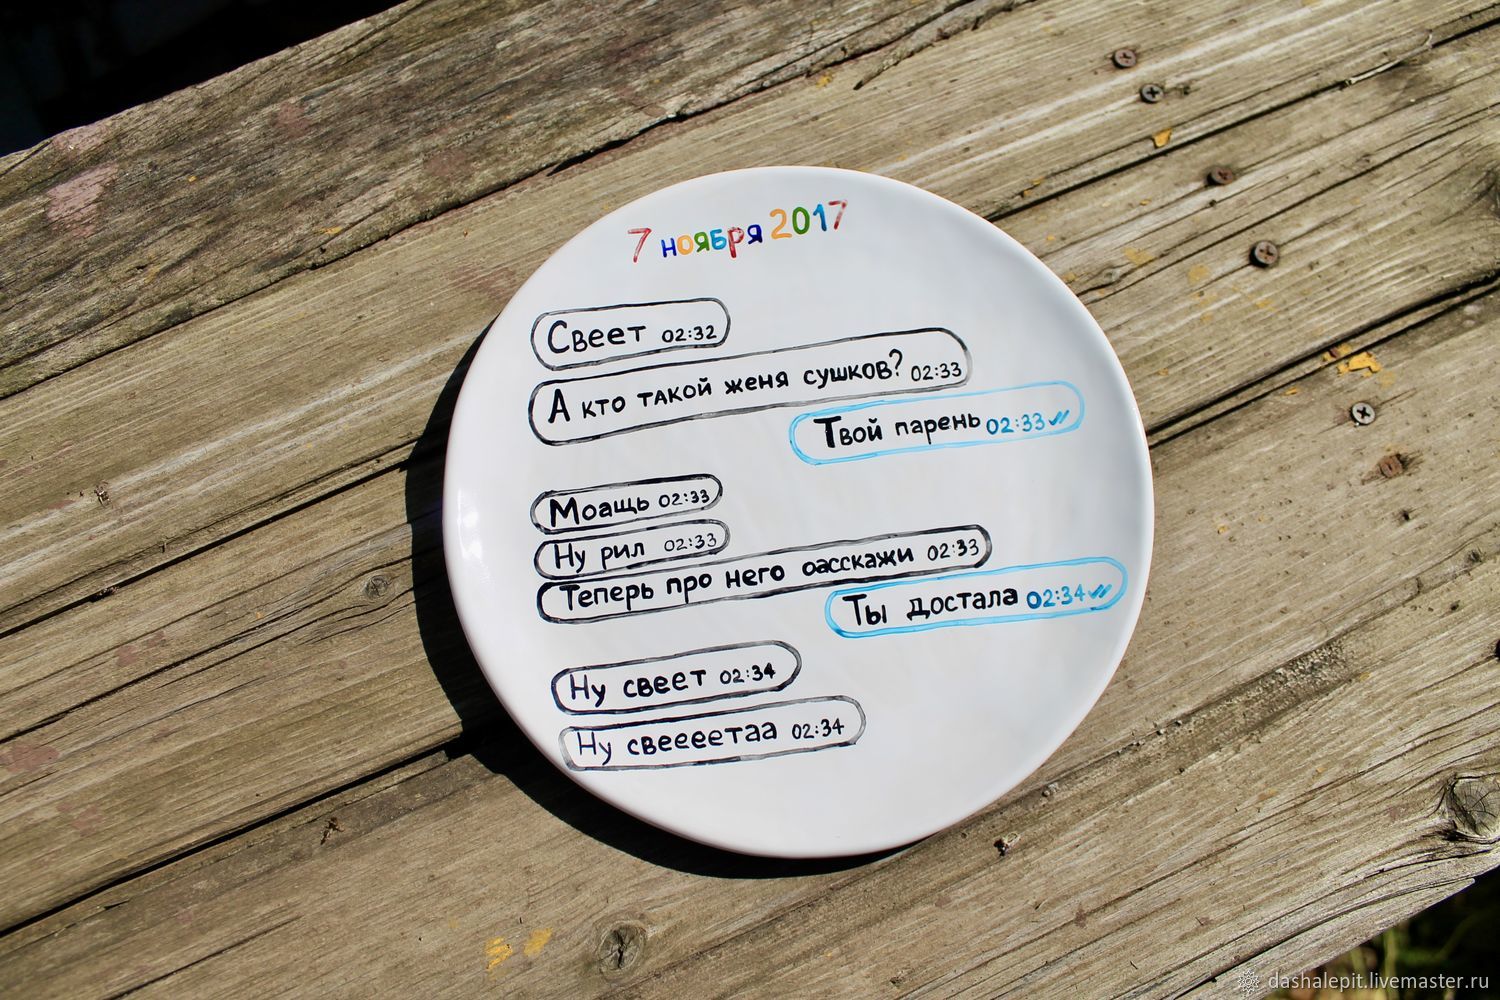 7 ноября 2017
Свеет 02:32
А кто такой женя сушков? 02:33
Твой парень 02:33
Моащь 02:33
Ну рил 02:33
Теперь про него оасскажи 02:33
Ты достала 02:34
Ну свеет 02:34
Ну свеееетаа 02:34
dashalepit.livemaster.ru